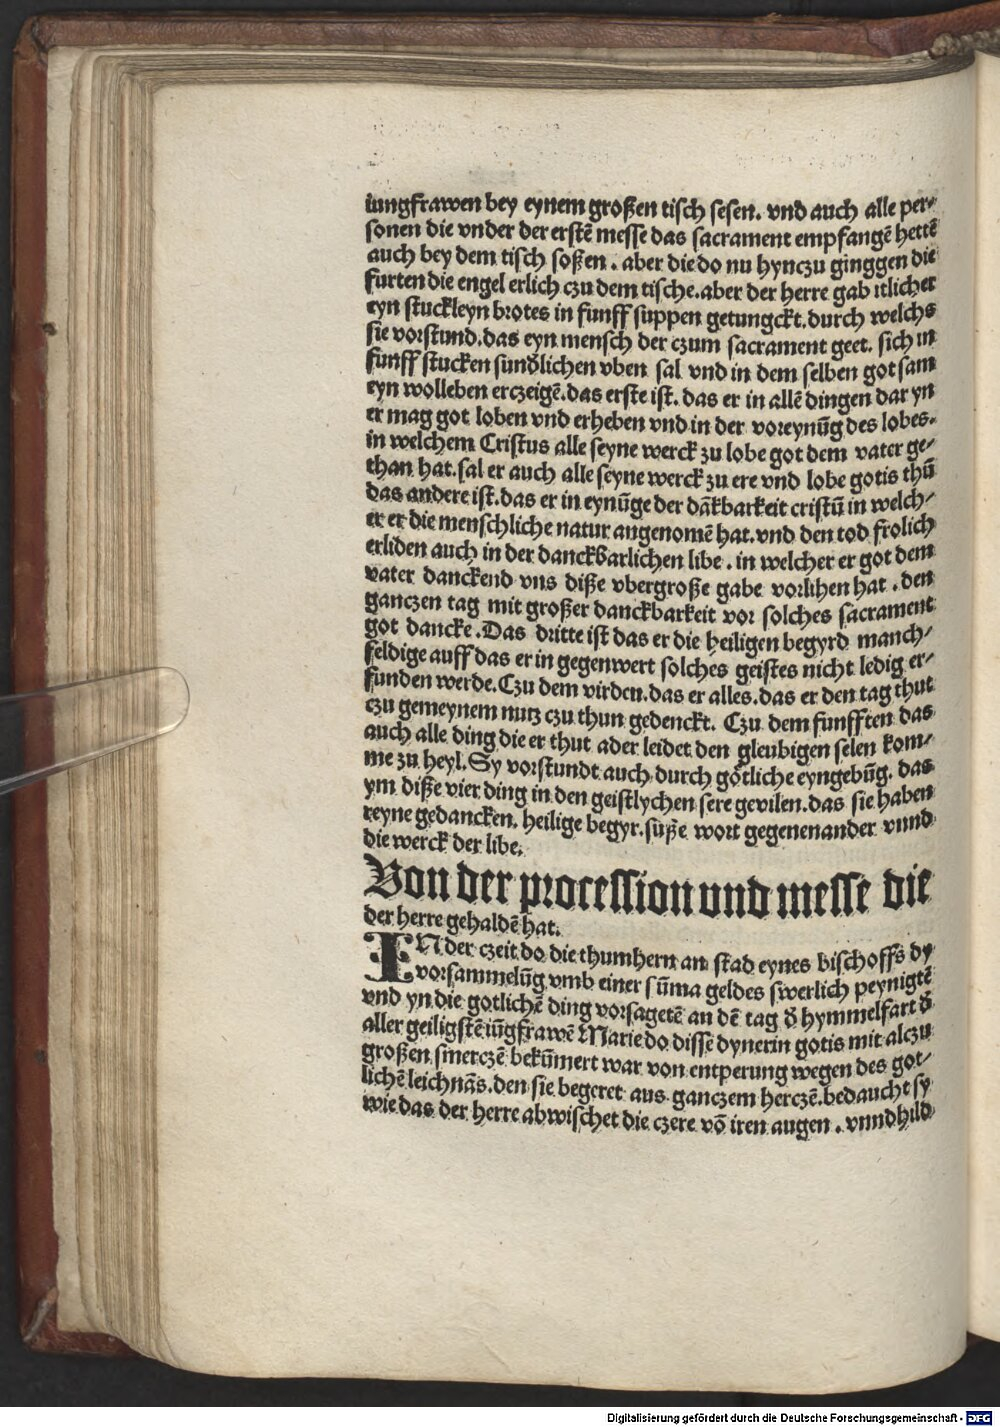 iungfrawen bey eynem großen tisch sesen. vnd auch alle per⸗
sonen die vnder der erstē messe das sacrament empfangē hettē
auch bey dem tisch soßen. aber die do nu hynczu ginggen die
furten die engel erlich czu dem tische. aber der herre gab itlicher
eyn stuckleyn brotes in funff suppen getungckt. durch welchs
sie vorstund. das eyn mensch der czum sacrament geet. sich in
funff stucken sunðlichen vben sal vnd in dem selben got sam
eyn wolleben erczeigē. das erste ist. das er in allē dingen dar yn
er mag got loben vnd erheben vnd in der voreynūg des lobes.
in welchem Cristus alle seyne werck zu lobe got dem vater ge⸗
than hat. sal er auch alle seyne werck zu ere vnd lobe gotis thū
das andere ist. das er in eynūge der dākbarkeit cristū in welch⸗
er er die menschliche natur angenomē hat. vnd den tod frolich
erliden auch in der danckbarlichen libe. in welcher er got dem
vater danckend vns diße vbergroße gabe vorlihen hat. den
ganczen tag mit großer danckbarkeit vor solches sacrament
got dancke. Das dritte ist das er die heiligen begyrd manch⸗
feldige auff das er in gegenwert solches geistes nicht ledig er⸗
funden werde. Czu dem virden. das er alles. das er den tag thut
czu gemeynem nutz czu thun gedenckt. Czu dem funfften das
auch alle ding die er thut ader leidet den gleubigen selen kom⸗
me zu heyl. Sy vorstundt auch durch gōtliche eyngebūg. das
ym diße vier ding in den geistlychen sere gevilen. das sie haben
reyne gedancken. heilige begyr. süße wort gegenenander vnnd
die werck der libe.
Von der procession vnd messe die
der herre gehaldē hat.
IN der czeit do die thumhern an stad eynes bischoffs dy
vorsammelūg vmb einer sūma geldes swerlich peynigtē
vnd yn die gotlichē ding vorsagetē an dē tag ð hymmelfart ð
aller geiligstē iūgfrawē Marie do dissē dynerin gotis mit alczu
großen smerczē bekūmert war von entperung wegen des got⸗
lichē leichnās. den sie begeret aus ganczem herczē. bedaucht sy
wie das der herre abwischet die czere vō iren augen. vnnd hild
Digitalisierung gefördert durch die Deutsche Forschungsgemeinschaft - DFG